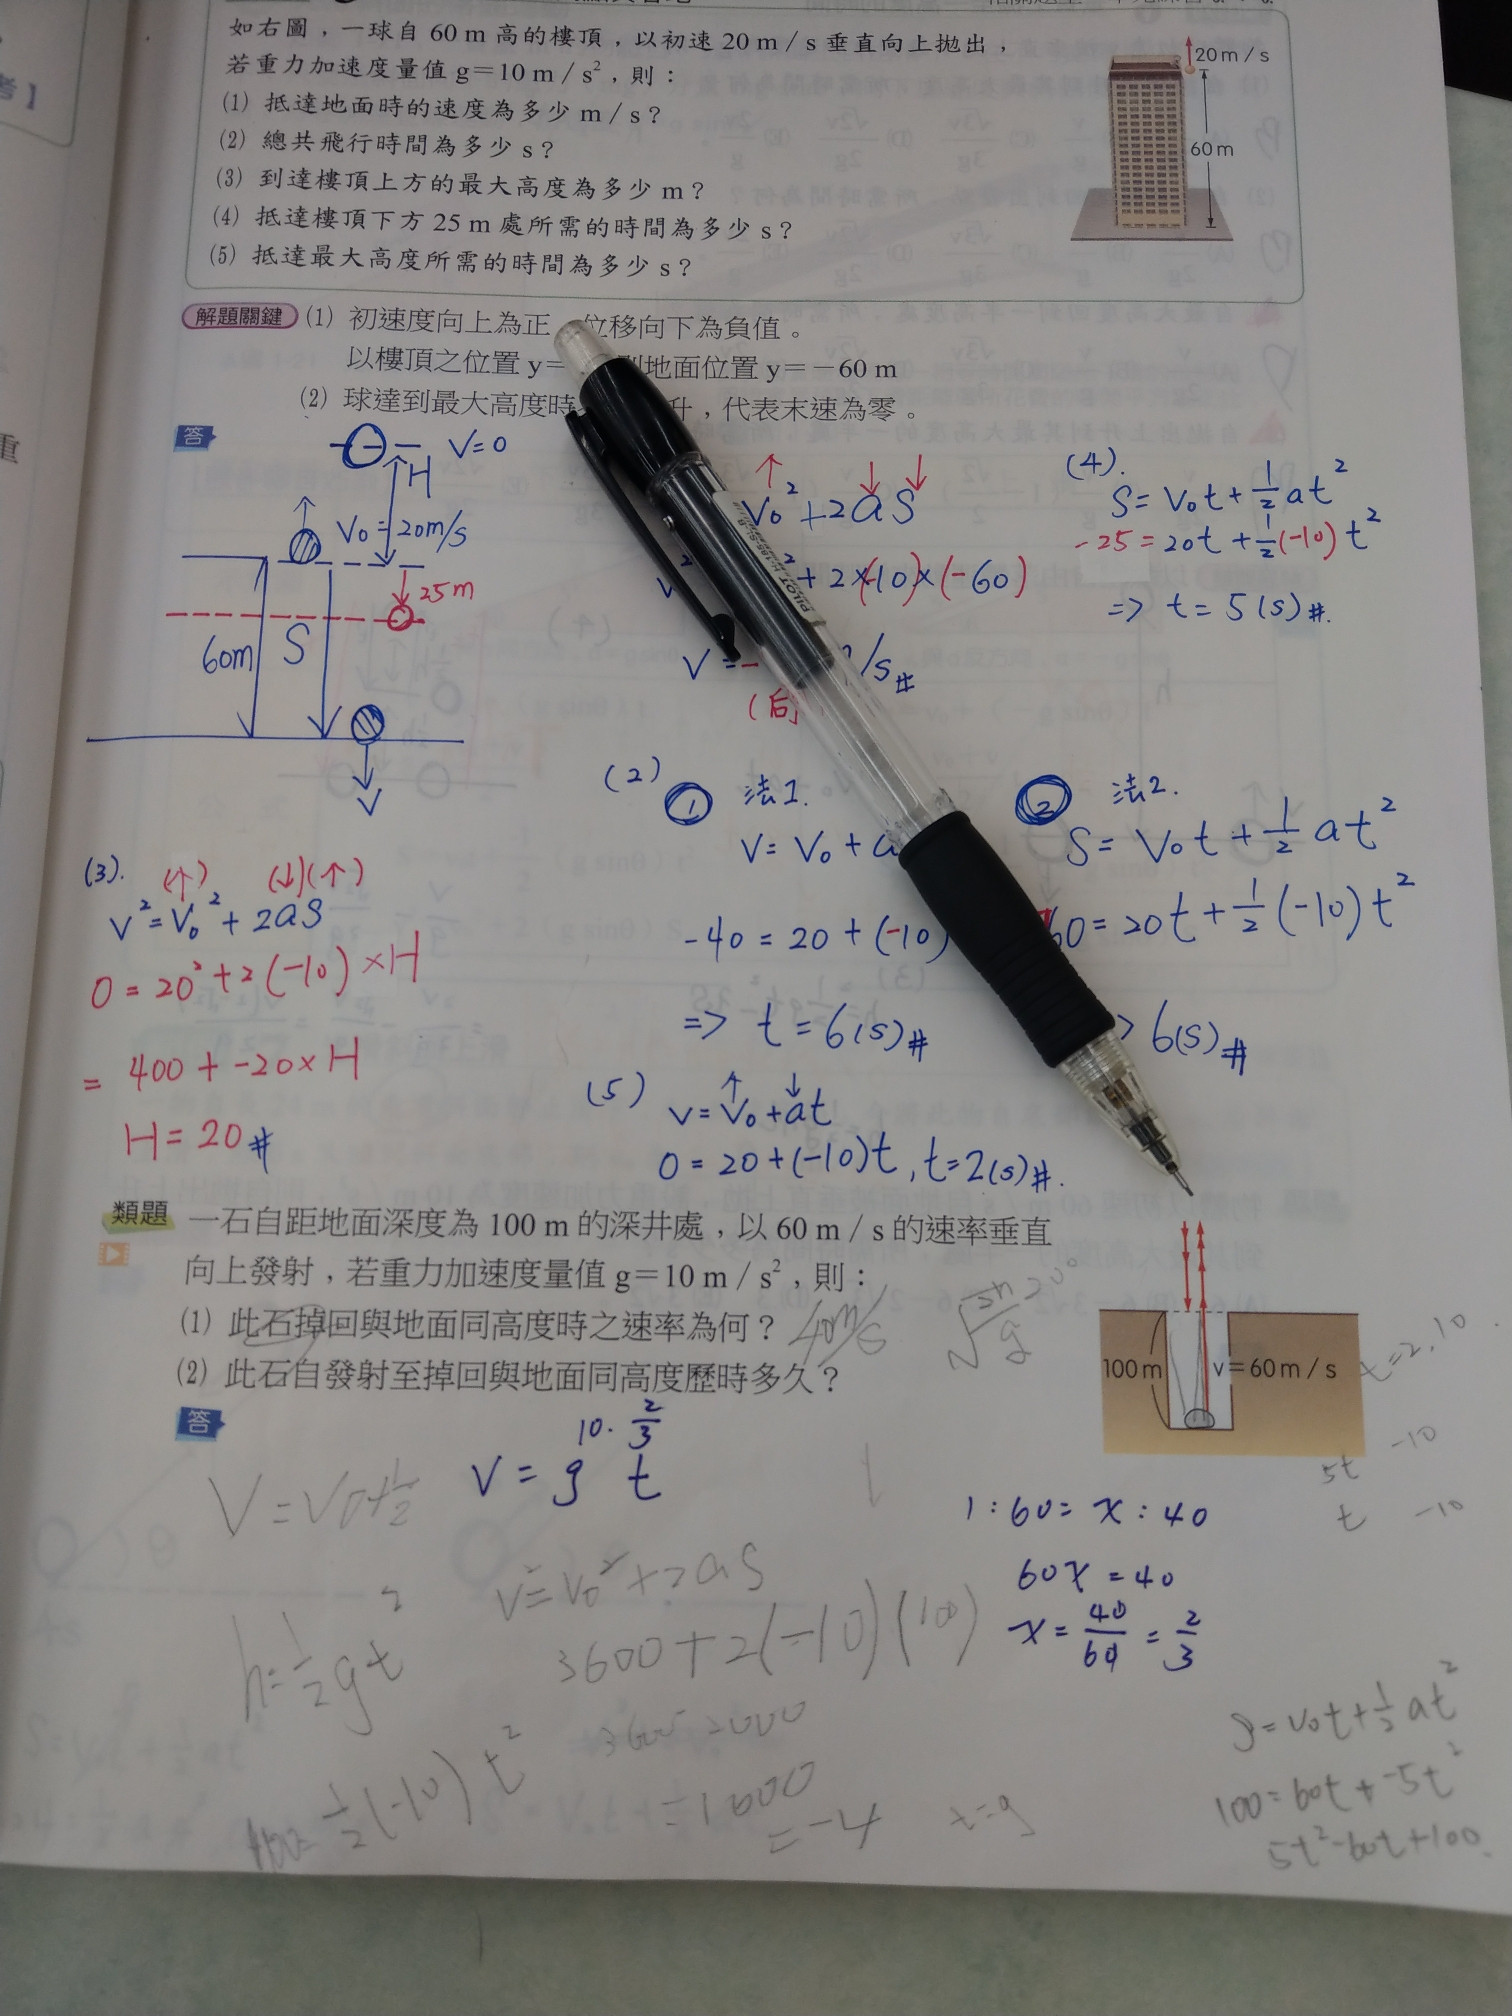 如右圖，一球自 60 m 高的樓頂，以初速 20 m／s 垂直向上拋出，
若重力加速度量值 g＝10 m／s²，則：
(1) 抵達地面時的速度為多少 m／s？
(2) 總共飛行時間為多少 s？
(3) 到達樓頂上方的最大高度為多少 m？
(4) 抵達樓頂下方 25 m 處所需的時間為多少 s？
(5) 抵達最大高度所需的時間為多少 s？
20 m／s
60 m
解題關鍵 (1) 初速度向上為正 位移向下為負值。
以樓頂之位置 y＝ 地面位置 y＝－60 m
(2) 球達到最大高度時 升，代表末速為零。
答
V=0
H
V₀=20m/s
25m
60m
S
V
V₀²+2aS
V² ²+2×(-10)×(-60)
V=- /s#
(4).
S=V₀t+½at²
-25=20t+½(-10)t²
=> t=5(s)#.
(2)
① 法1.
V=V₀+a
-40=20+(-10)
=> t=6(s)#
② 法2.
S=V₀t+½at²
60=20t+½(-10)t²
> 6(s)#
(3). (↑) (↓)(↑)
V²=V₀²+2aS
0=20²+2(-10)×H
= 400+-20×H
H=20#
(5) V=V₀+at
0=20+(-10)t, t=2(s)#.
類題 一石自距地面深度為 100 m 的深井處，以 60 m／s 的速率垂直
向上發射，若重力加速度量值 g＝10 m／s²，則：
(1) 此石掉回與地面同高度時之速率為何？ 40m/s
(2) 此石自發射至掉回與地面同高度歷時多久？
100 m
v＝60 m／s
t=2,10.
答
10. 2/3
V=g t
V=V₀+½
V²=V₀²+2aS
3600+2(-10)(100)
h=½gt²
½(-10)t²
1600
=-4
1:60=x:40
60x=40
x=40/60=2/3
5t -10
t -10
=V₀t+½at²
100=60t+-5t²
5t²-60t+100